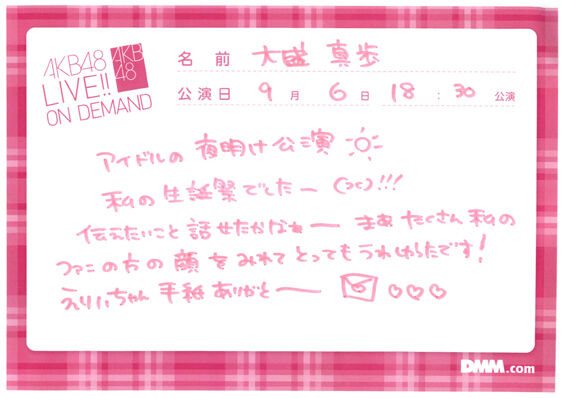 AKB48
LIVE!!
ON DEMAND
AKB
48
名前 大盛 真歩
公演日 9月 6日 18:30 公演
アイドルの 夜明け 公演
私の 生誕祭でしたー (つc)!!!
伝えたいこと 話せたかなぁー まぁ たくさん 私の
ファンの方の 顔を みれて とっても うれしかったです!
えりいちゃん 手紙 ありがとー ♡♡♡
DMM.com